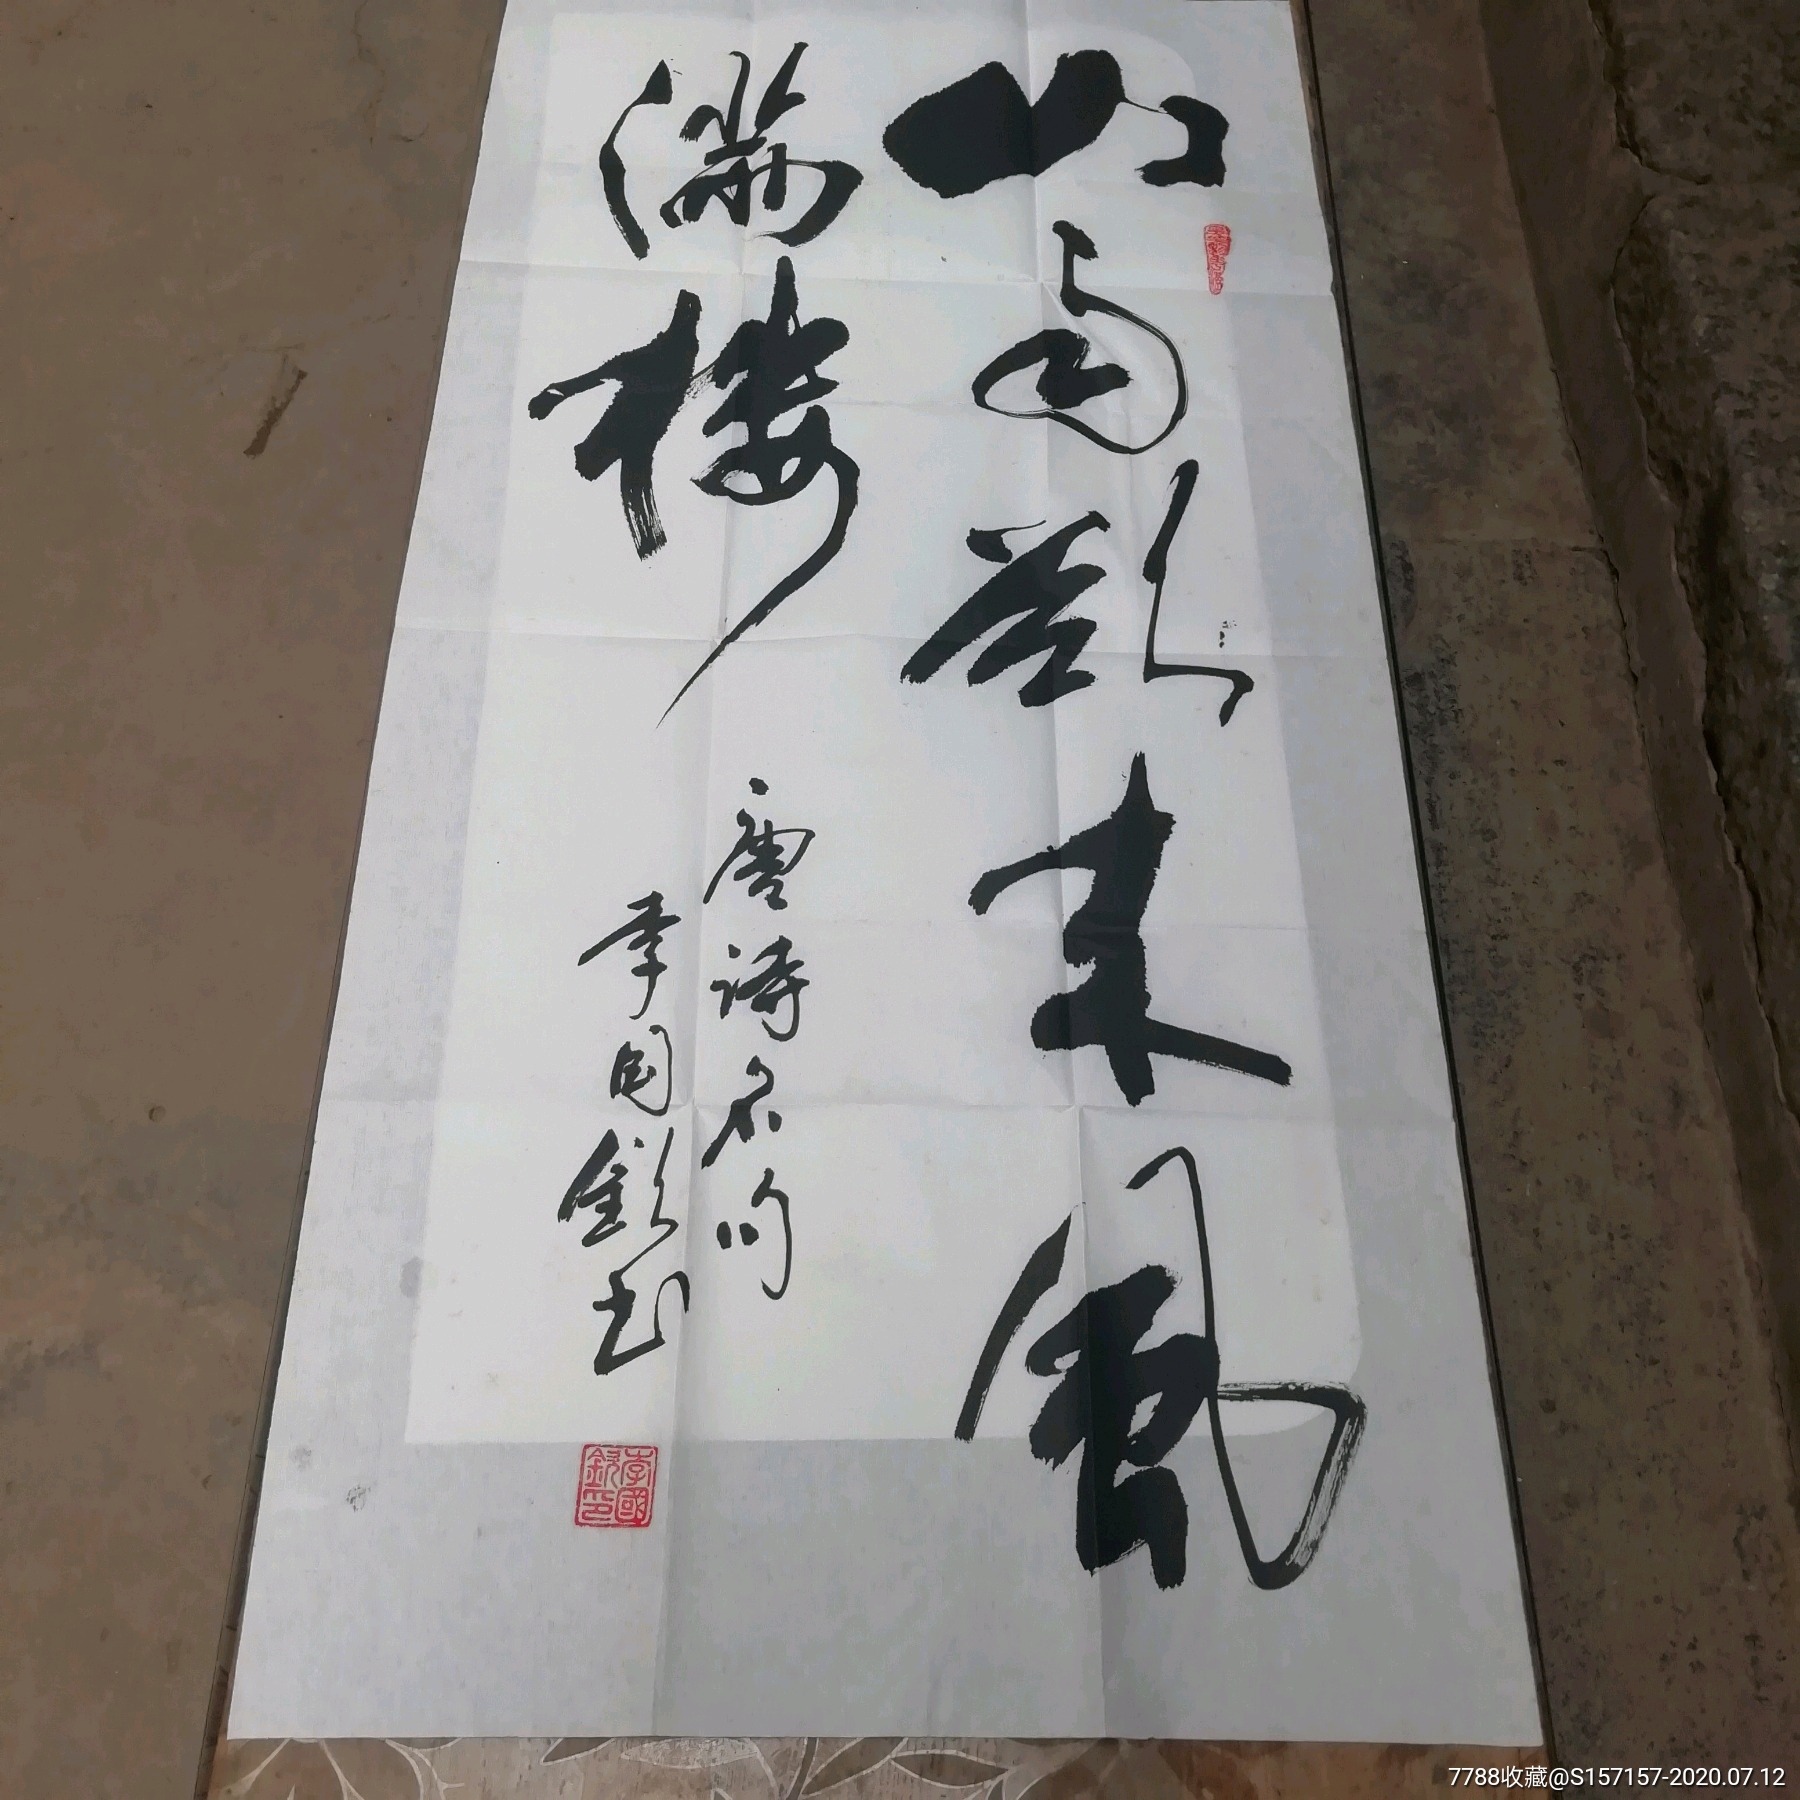 山雨欲来风
满楼
唐诗名句
李国钦书
李國钦印
7788收藏@S157157-2020.07.12